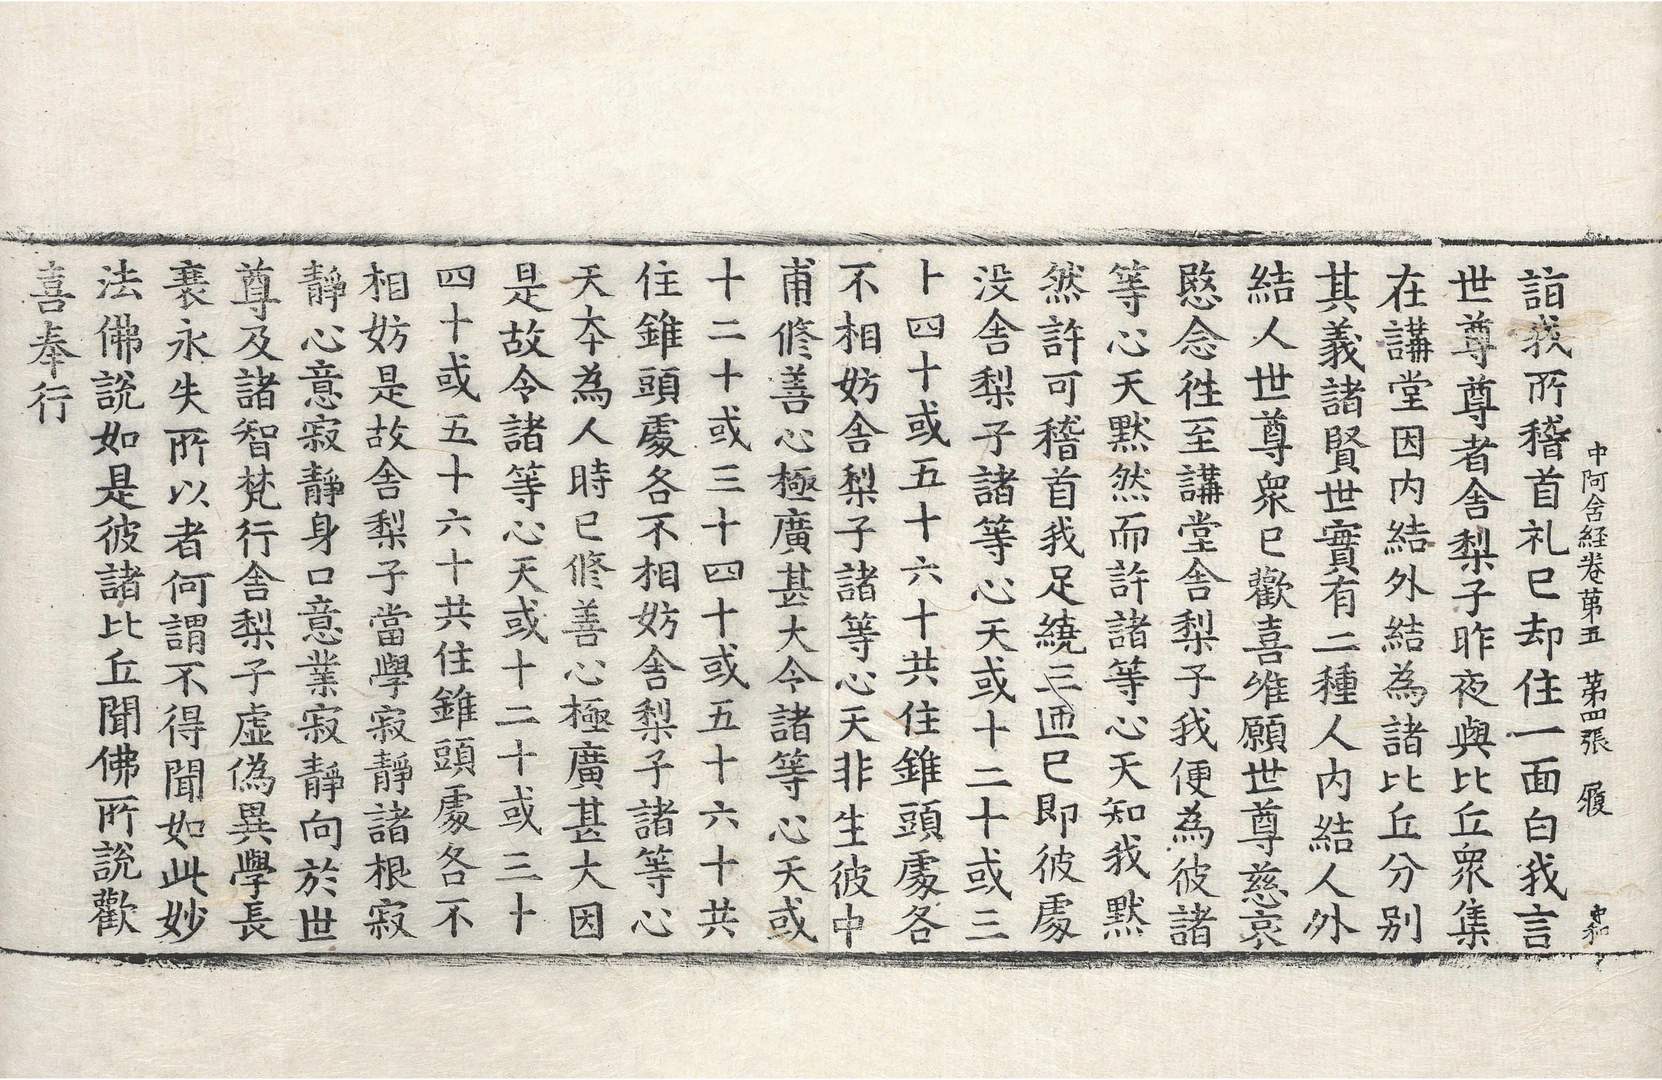 中阿含経卷第五　第四張　履
詣我所稽首礼已却住一面白我言
世尊尊者舎梨子昨夜與比丘衆集
在講堂因内結外結為諸比丘分别
其義諸賢世實有二種人内結人外
結人世尊衆已歡喜唯願世尊慈哀
愍念往至講堂舎梨子我便為彼諸
等心天黙然而許諸等心天知我黙
然許可稽首我足繞三迊已即彼處
没舎梨子諸等心天或十二十或三
十四十或五十六十共住錐頭處各
不相妨舎梨子諸等心天非生彼中
甫修善心極廣甚大令諸等心天或
十二十或三十四十或五十六十共
住錐頭處各不相妨舎梨子諸等心
天夲為人時已修善心極廣甚大因
是故令諸等心天或十二十或三十
四十或五十六十共住錐頭處各不
相妨是故舎梨子當學寂靜諸根寂
靜心意寂靜身口意業寂靜向於世
尊及諸智梵行舎梨子虚偽異學長
衰永失所以者何謂不得聞如此妙
法佛說如是彼諸比丘聞佛所說歡
喜奉行